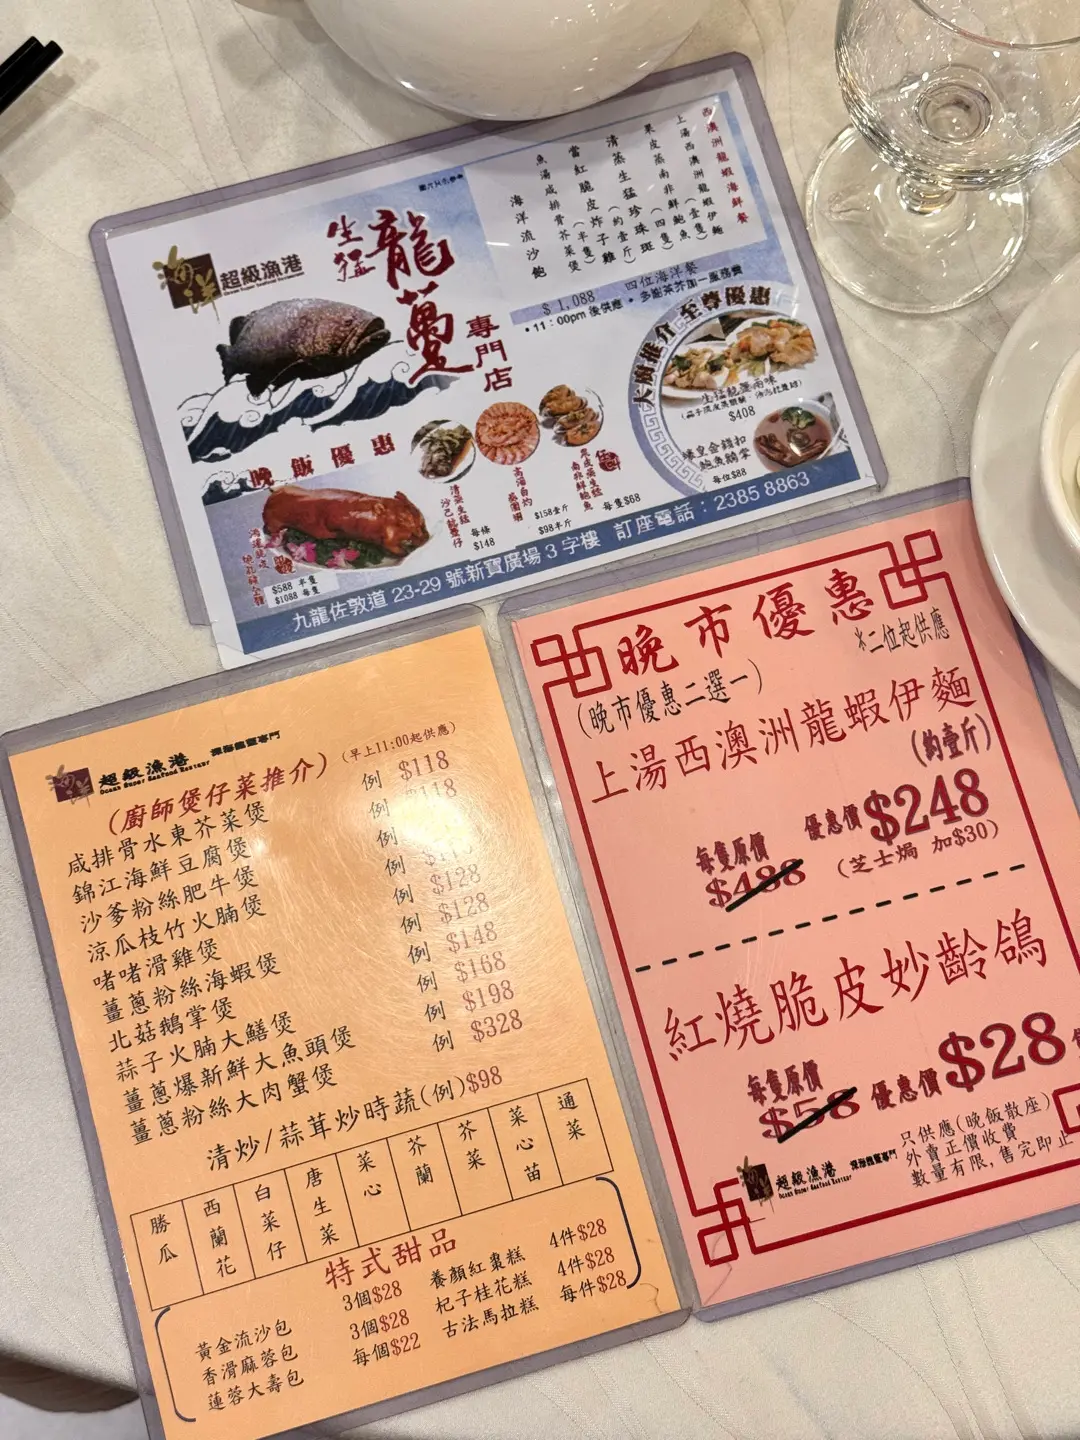 海洋
超級漁港
Ocean Super Seafood Eatery
圖片只作參考
生猛
龍躉
專門店
西澳洲龍蝦海鮮餐
上湯西澳洲龍蝦伊麵(壹隻)
果皮蒸南非鮮鮑魚(四隻)
清蒸生猛珍珠斑(約壹斤)
當紅脆皮炸子雞(半隻)
魚湯咸排骨芥菜煲
海洋流沙飽
$1,088 四位海洋餐
•11:00pm 後供應 • 多謝茶芥加一服務費
大廚推介 至尊優惠
生猛龍躉兩味
$408
蠔皇金錢扣
鮑魚鵝掌
每位$88
晚飯優惠
$588 半隻
$1088 每隻
清蒸生猛
沙巴龍躉仔
每條
$148
高湯白灼
基圍蝦
$158壹斤
$98半斤
果皮蒸生猛
南非鮮鮑魚
每隻$68
九龍佐敦道 23-29 號新寶廣場 3 字樓 訂座電話：2385 8863
海洋
超級漁港
Ocean Super Seafood Eatery
深海龍躉專門
(廚師煲仔菜推介)
(早上11:00起供應)
咸排骨水東芥菜煲 例 $118
錦江海鮮豆腐煲 例 $118
沙爹粉絲肥牛煲 例
涼瓜枝竹火腩煲 例
啫啫滑雞煲 例 $128
薑蔥粉絲海蝦煲 例 $128
北菇鵝掌煲 例 $148
蒜子火腩大鱔煲 例 $168
薑蔥爆新鮮大魚頭煲 例 $198
薑蔥粉絲大肉蟹煲 例 $328
清炒/蒜茸炒時蔬(例)$98
勝瓜 西蘭花 白菜仔 唐生菜 菜心 芥蘭 芥菜 菜心苗 通菜
特式甜品
黃金流沙包 3個$28 養顏紅棗糕 4件$28
香滑麻蓉包 3個$28 杞子桂花糕 4件$28
蓮蓉大壽包 每個$22 古法馬拉糕 每件$28
晚市優惠
(晚市優惠二選一) *二位起供應
上湯西澳洲龍蝦伊麵
(約壹斤)
每隻原價 優惠價 $248
$488 (芝士焗 加$30)
紅燒脆皮妙齡鴿
每隻原價 優惠價 $28
$58
只供應(晚飯散座)
外賣正價收費
數量有限,售完即止
海洋
超級漁港
Ocean Super Seafood Eatery
深海龍躉專門